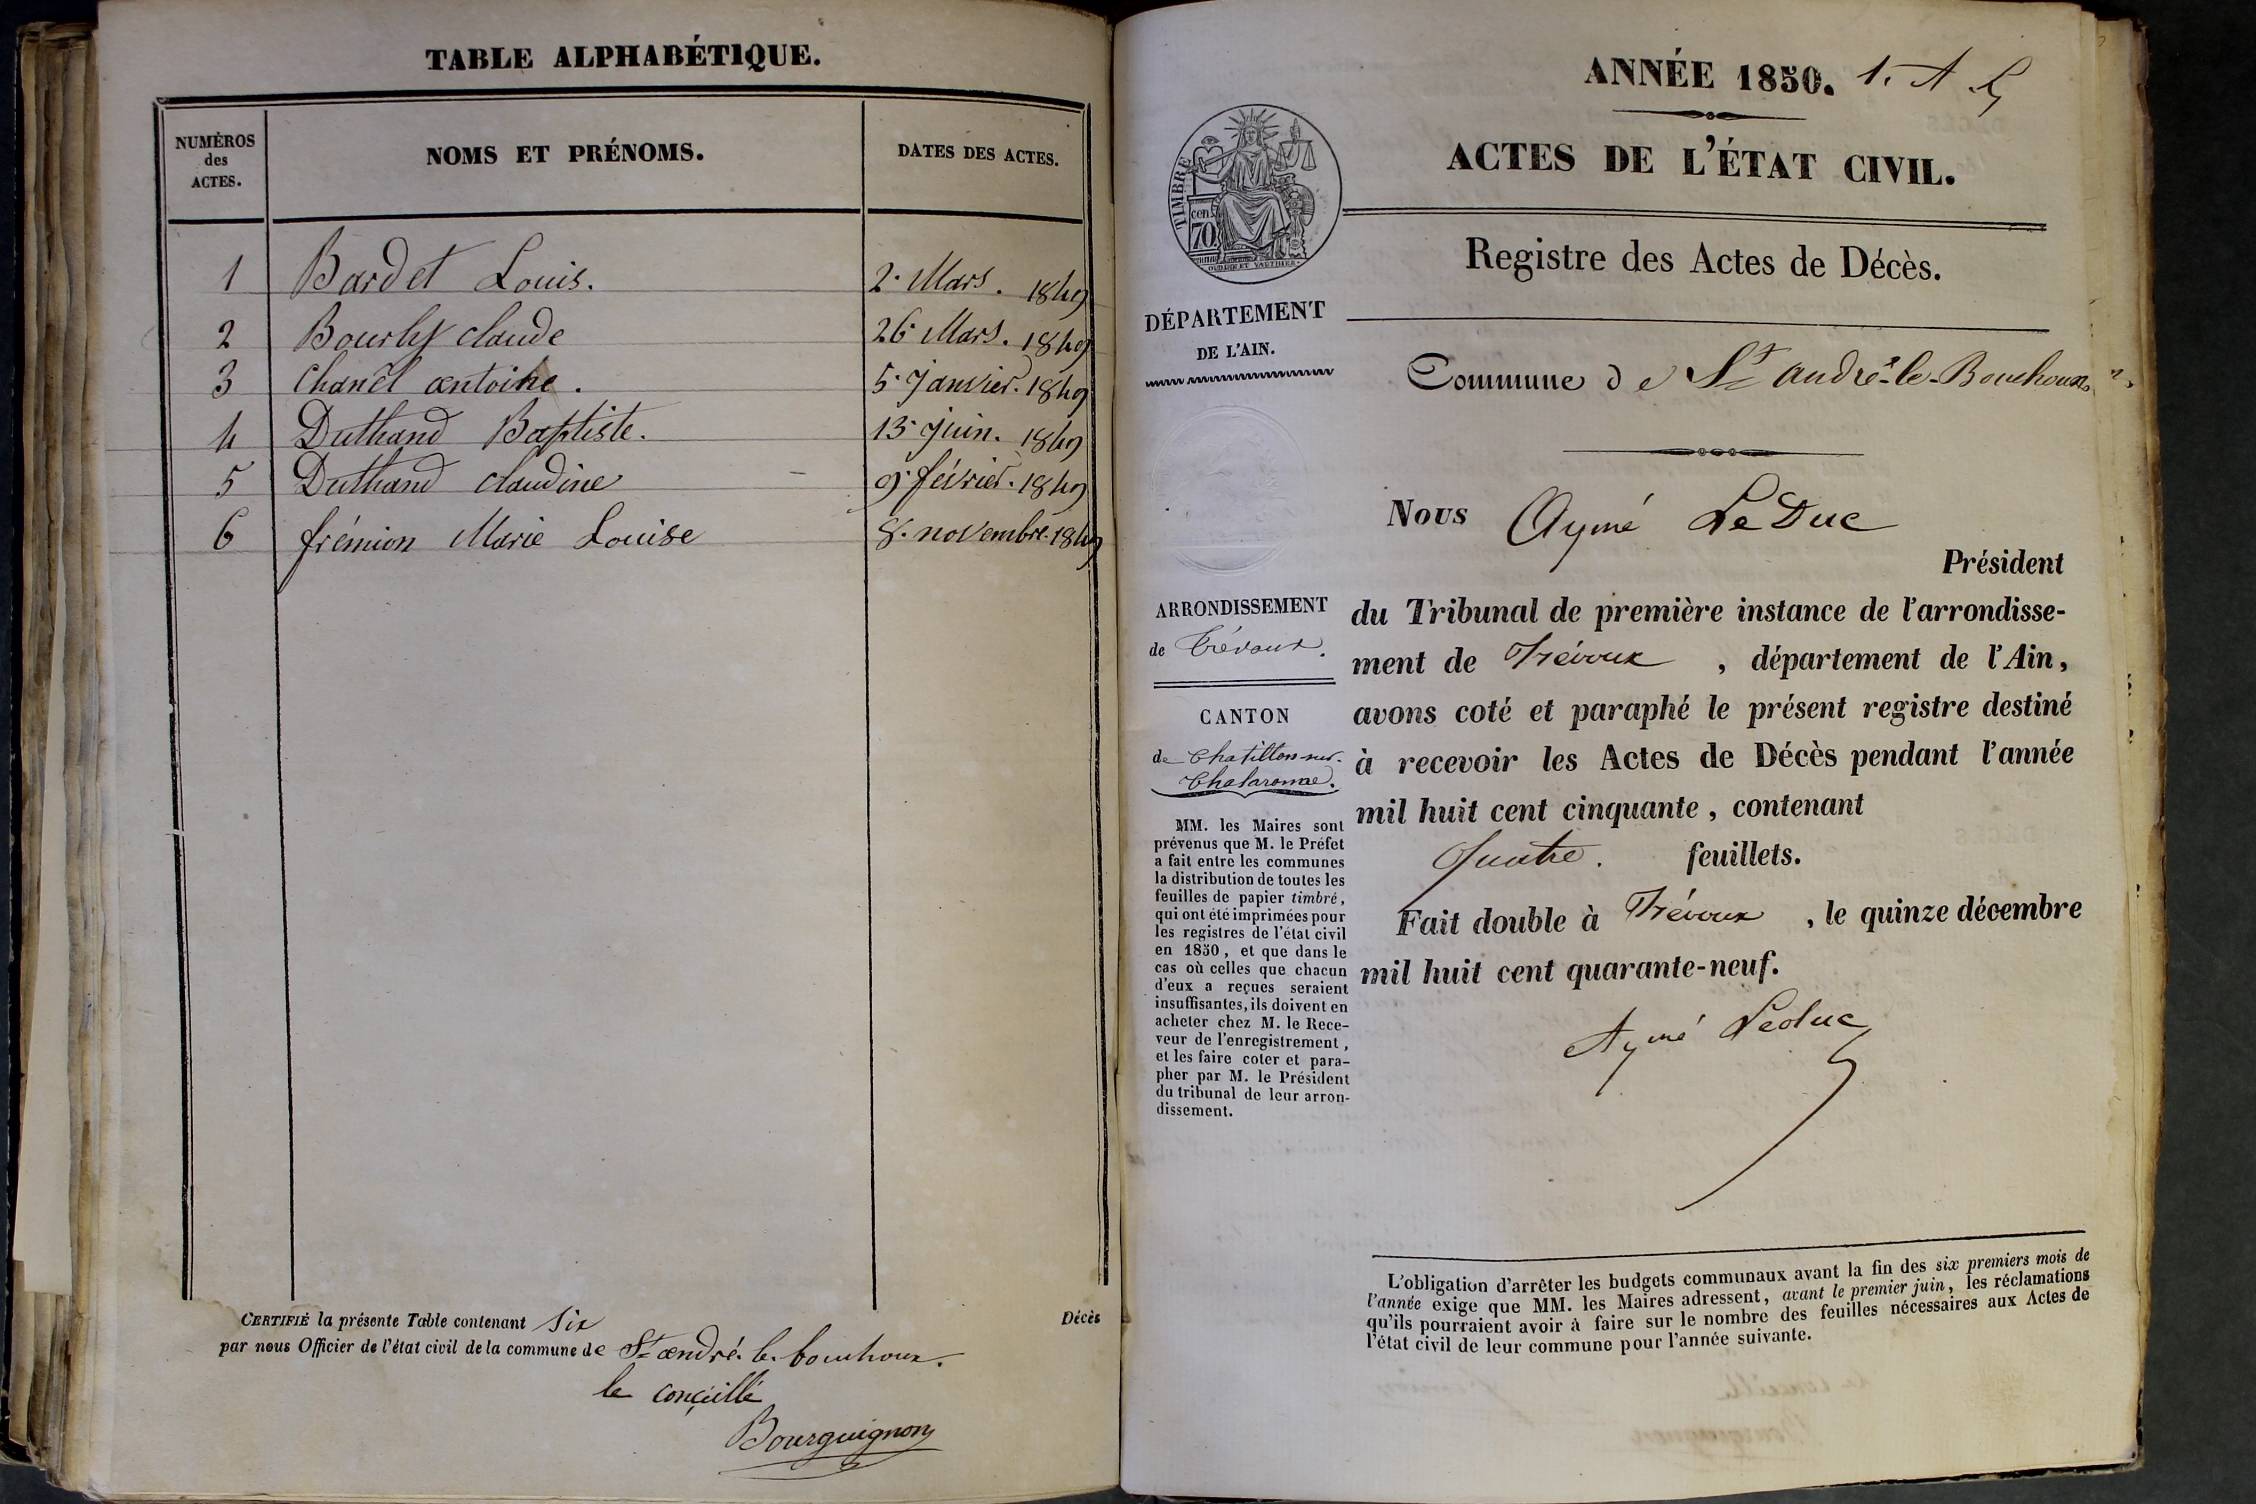 TABLE ALPHABÉTIQUE.
NUMÉROS des ACTES. NOMS ET PRÉNOMS. DATES DES ACTES.
1 Bardet Louis. 2. Mars. 1849
2 Bourly claude 26 Mars. 1849
3 Chanel antoine. 5. Janvier. 1849
4 Duthand Baptiste. 13. Juin. 1849
5 Duthand claudine 9. février. 1849
6 frémion Marie Louise 8. novembre. 1849
CERTIFIÉ la présente Table contenant Six Décès
par nous Officier de l'état civil de la commune de St andré. le. bouchoux.
le conçeillé
Bourguignon
ANNÉE 1850. 1. A L
ACTES DE L'ÉTAT CIVIL.
TIMBRE
cen. 70.
OUDINE ET VAUTHIER.
Registre des Actes de Décès.
DÉPARTEMENT
DE L'AIN.
Commune de St andré-le-Bouchoux
ARRONDISSEMENT
de Trévoux.
CANTON
de Chatillon-sur-
Chalaronne.
MM. les Maires sont
prévenus que M. le Préfet
a fait entre les communes
la distribution de toutes les
feuilles de papier timbré,
qui ont été imprimées pour
les registres de l'état civil
en 1850, et que dans le
cas où celles que chacun
d'eux a reçues seraient
insuffisantes, ils doivent en
acheter chez M. le Rece-
veur de l'enregistrement,
et les faire coter et para-
pher par M. le Président
du tribunal de leur arron-
dissement.
Nous Aymé LeDuc
Président
du Tribunal de première instance de l'arrondisse-
ment de Trévoux, département de l'Ain,
avons coté et paraphé le présent registre destiné
à recevoir les Actes de Décès pendant l'année
mil huit cent cinquante, contenant
Quatre. feuillets.
Fait double à Trévoux, le quinze décembre
mil huit cent quarante-neuf.
Aymé Leduc
L'obligation d'arrêter les budgets communaux avant la fin des six premiers mois de
l'année exige que MM. les Maires adressent, avant le premier juin, les réclamations
qu'ils pourraient avoir à faire sur le nombre des feuilles nécessaires aux Actes de
l'état civil de leur commune pour l'année suivante.